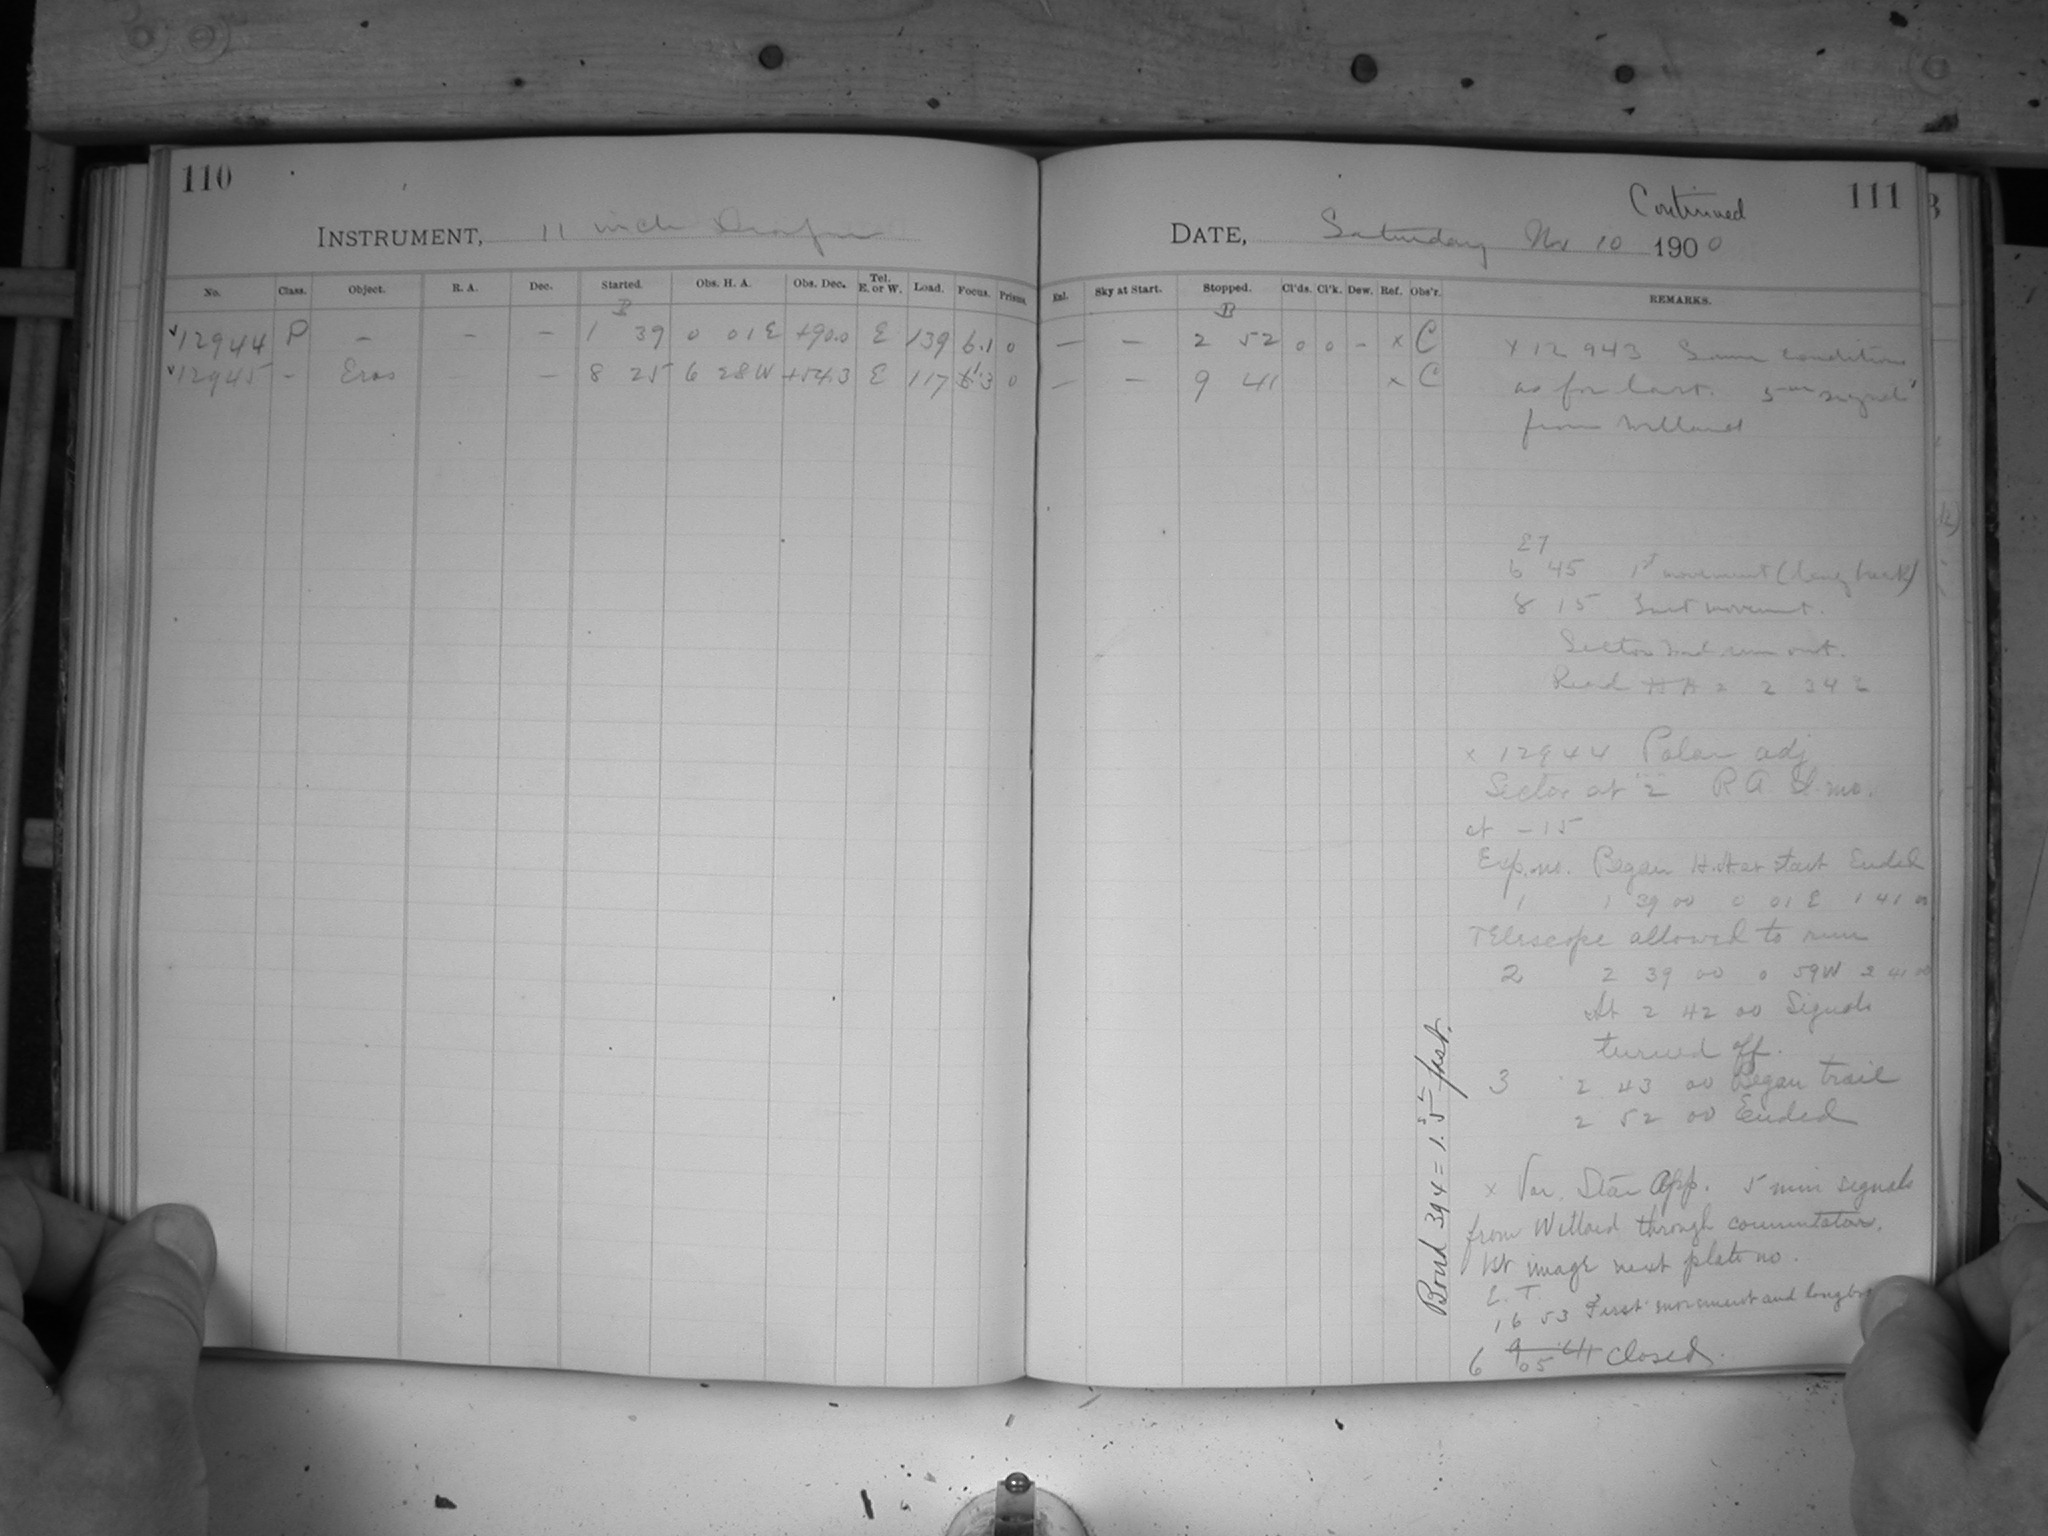 110
INSTRUMENT, 11 inch Draper
No. Class. Object. R. A. Dec. Started. Obs. H. A. Obs. Dec. Tel. E. or W. Load. Focus. Prisms.
B
v 12944 P — — — 1 39 0 01 E +90.0 E 139 6.1 0
v 12945 - Eros — — 8 25 6 28 W +54.3 E 117 6.3 0
Continued 111
DATE, Saturday Nov 10 1900
Exl. Sky at Start. Stopped. Cl'ds. Cl'k. Dew. Ref. Obs'r. REMARKS.
B
— — 2 52 0 0 - x C
— — 9 41 x C
x 12943 Same conditions
as for last. 5 m signals
from Willard
ET
6 45 1st movement (long back)
8 15 Last movement.
Sector had run out.
Read 2 34 E
x 12944 Polar adj
Sector at 2 R A Sl. mo.
at -15
Exp. no. Began H.A at start Ended
1 1 39 00 0 01 E 1 41 00
Telescope allowed to run
2 2 39 00 0 59 W 2 41 00
At 2 42 00 Signals
turned off.
3 2 43 00 Began trail
2 52 00 Ended
x Var. Star App. 5 min signals
from Willard through commutator.
1st image next plate no.
E. T.
16 53 First movement and long
6 05 closed.
Bond 394 = 1.5 fast.